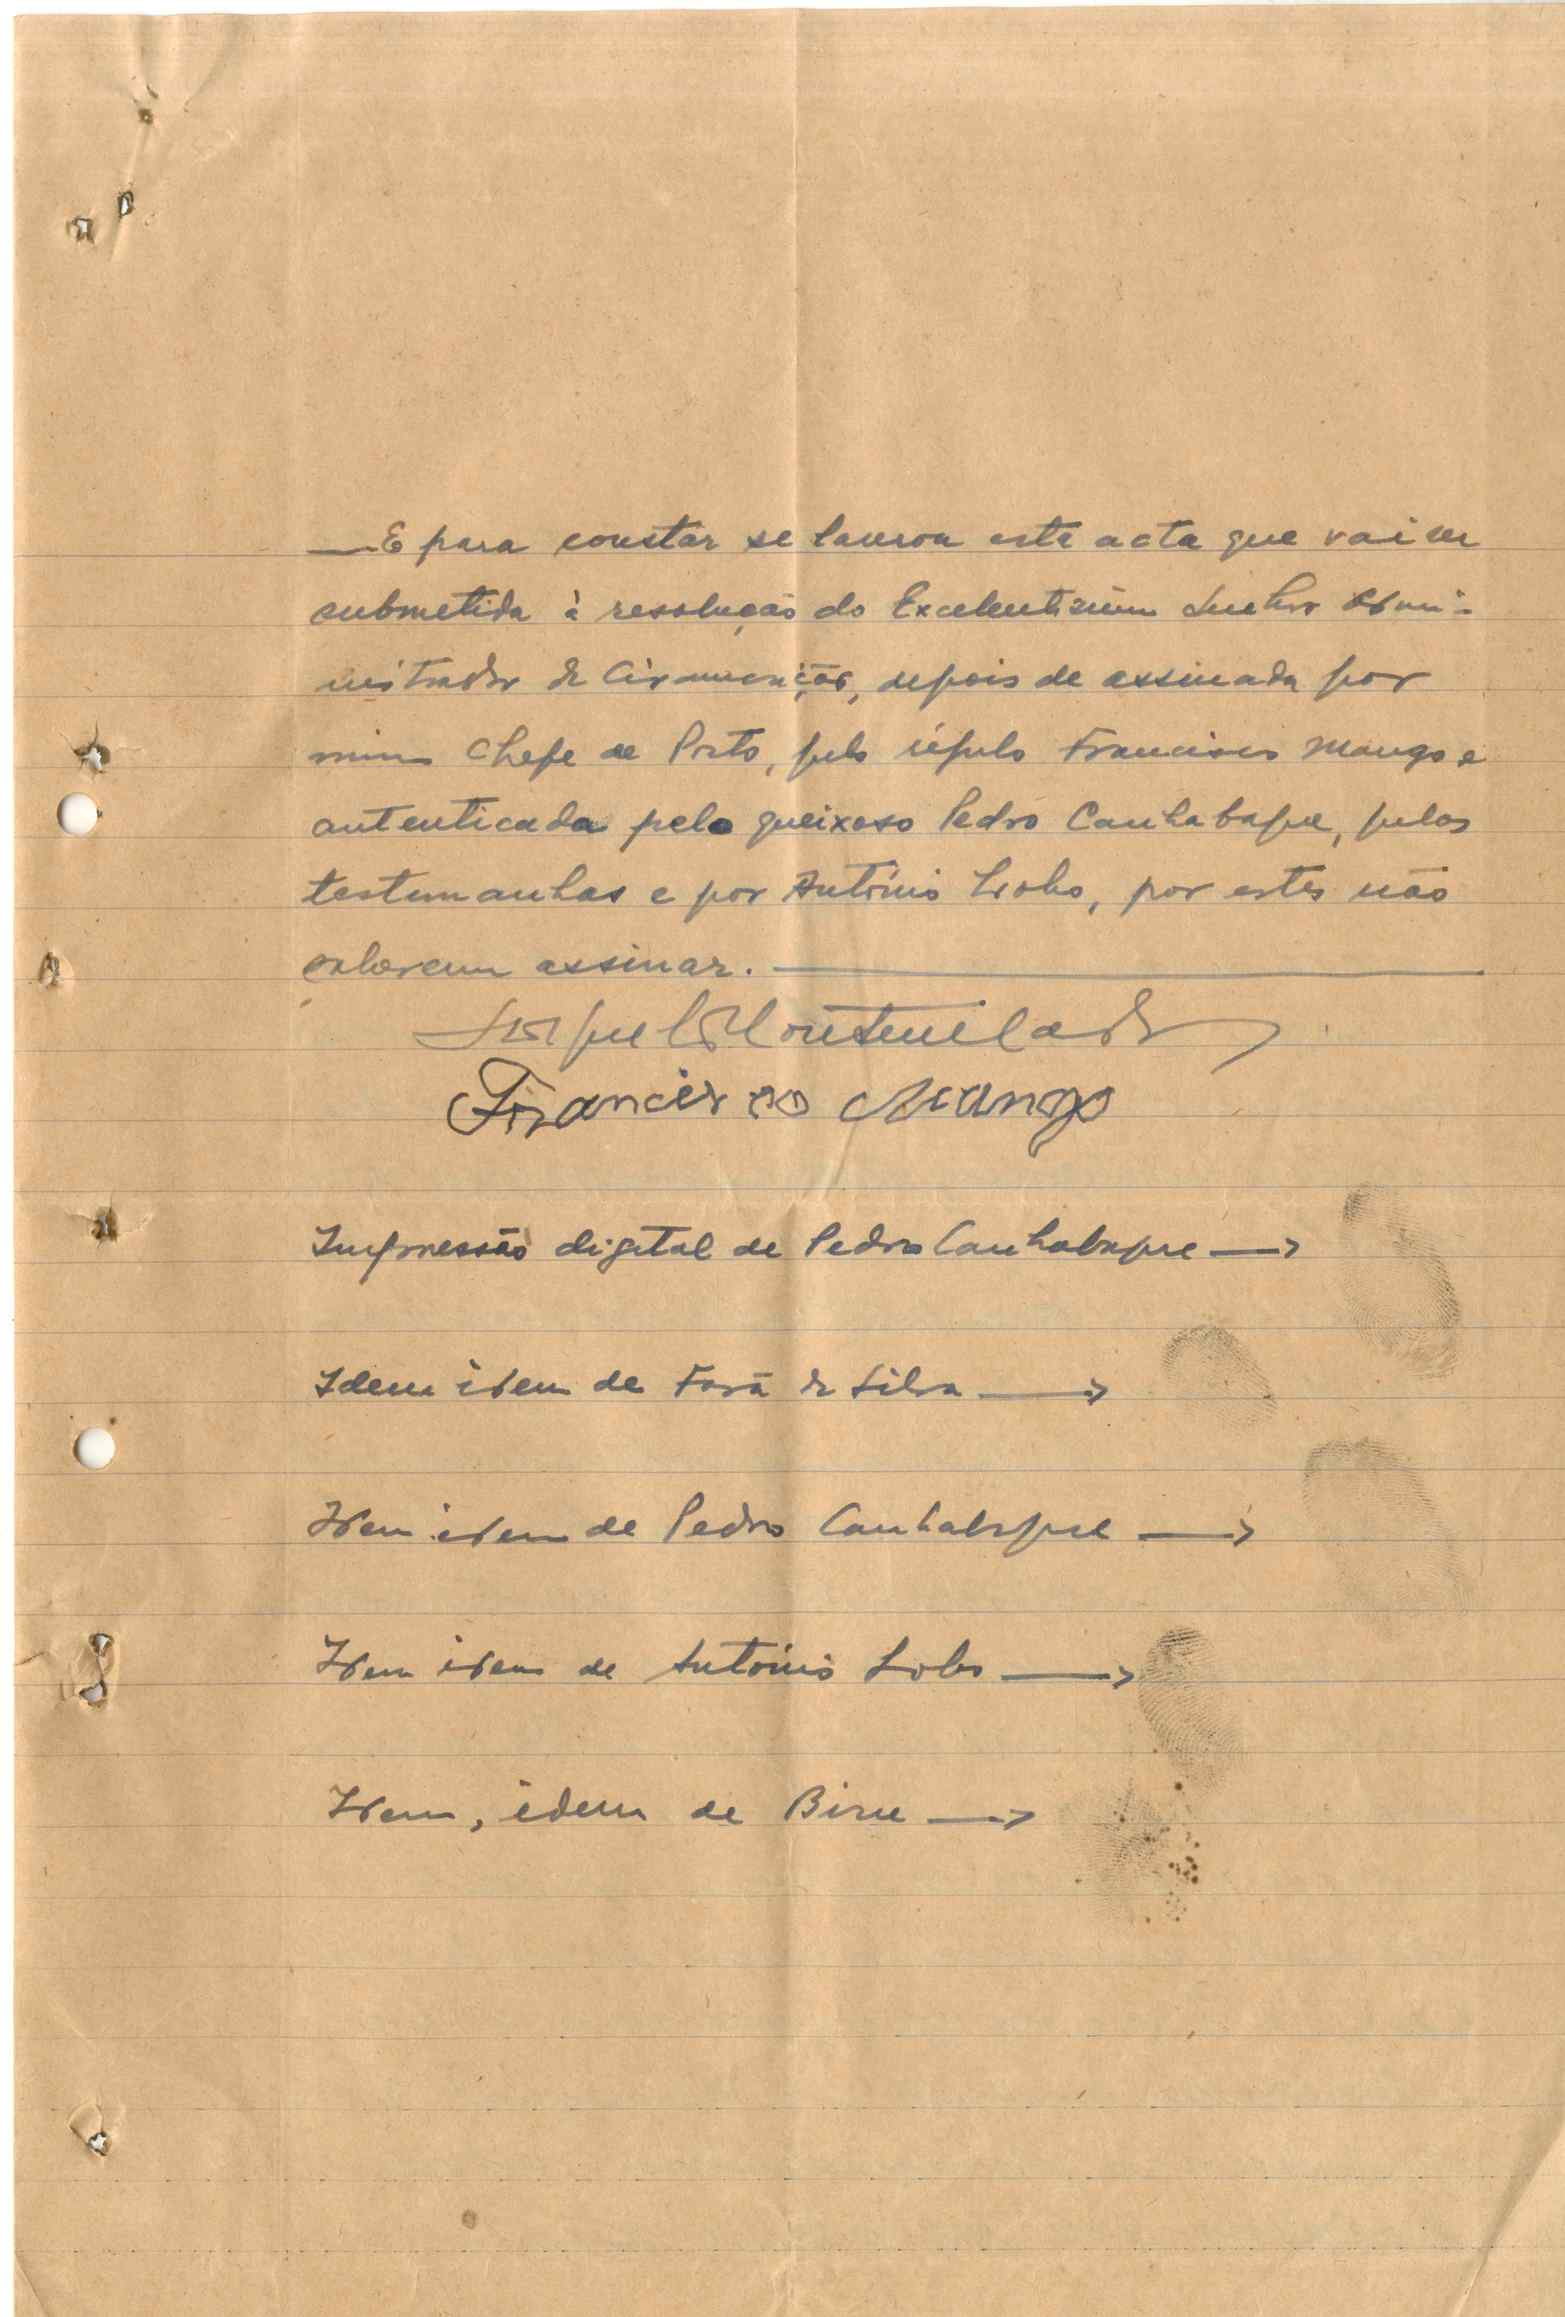 — E para constar se lavrou esta acta que vai ser
submetida à resolução do Excelentíssimo Senhor Admi-
nistrador de Circunscrição, depois de assinada por
mim Chefe de Posto, pelo régulo Francisco Mango e
autenticada pelo queixoso Pedro Canhabaque, pelas
testemunhas e por António Lobo, por estes não
saberem assinar. —
Francisco Mango
Impressão digital de Pedro Canhabaque →
Idem idem de Fará da Silva →
Idem idem de Pedro Canhabaque →
Idem idem de António Lobo →
Idem, idem de Birne →